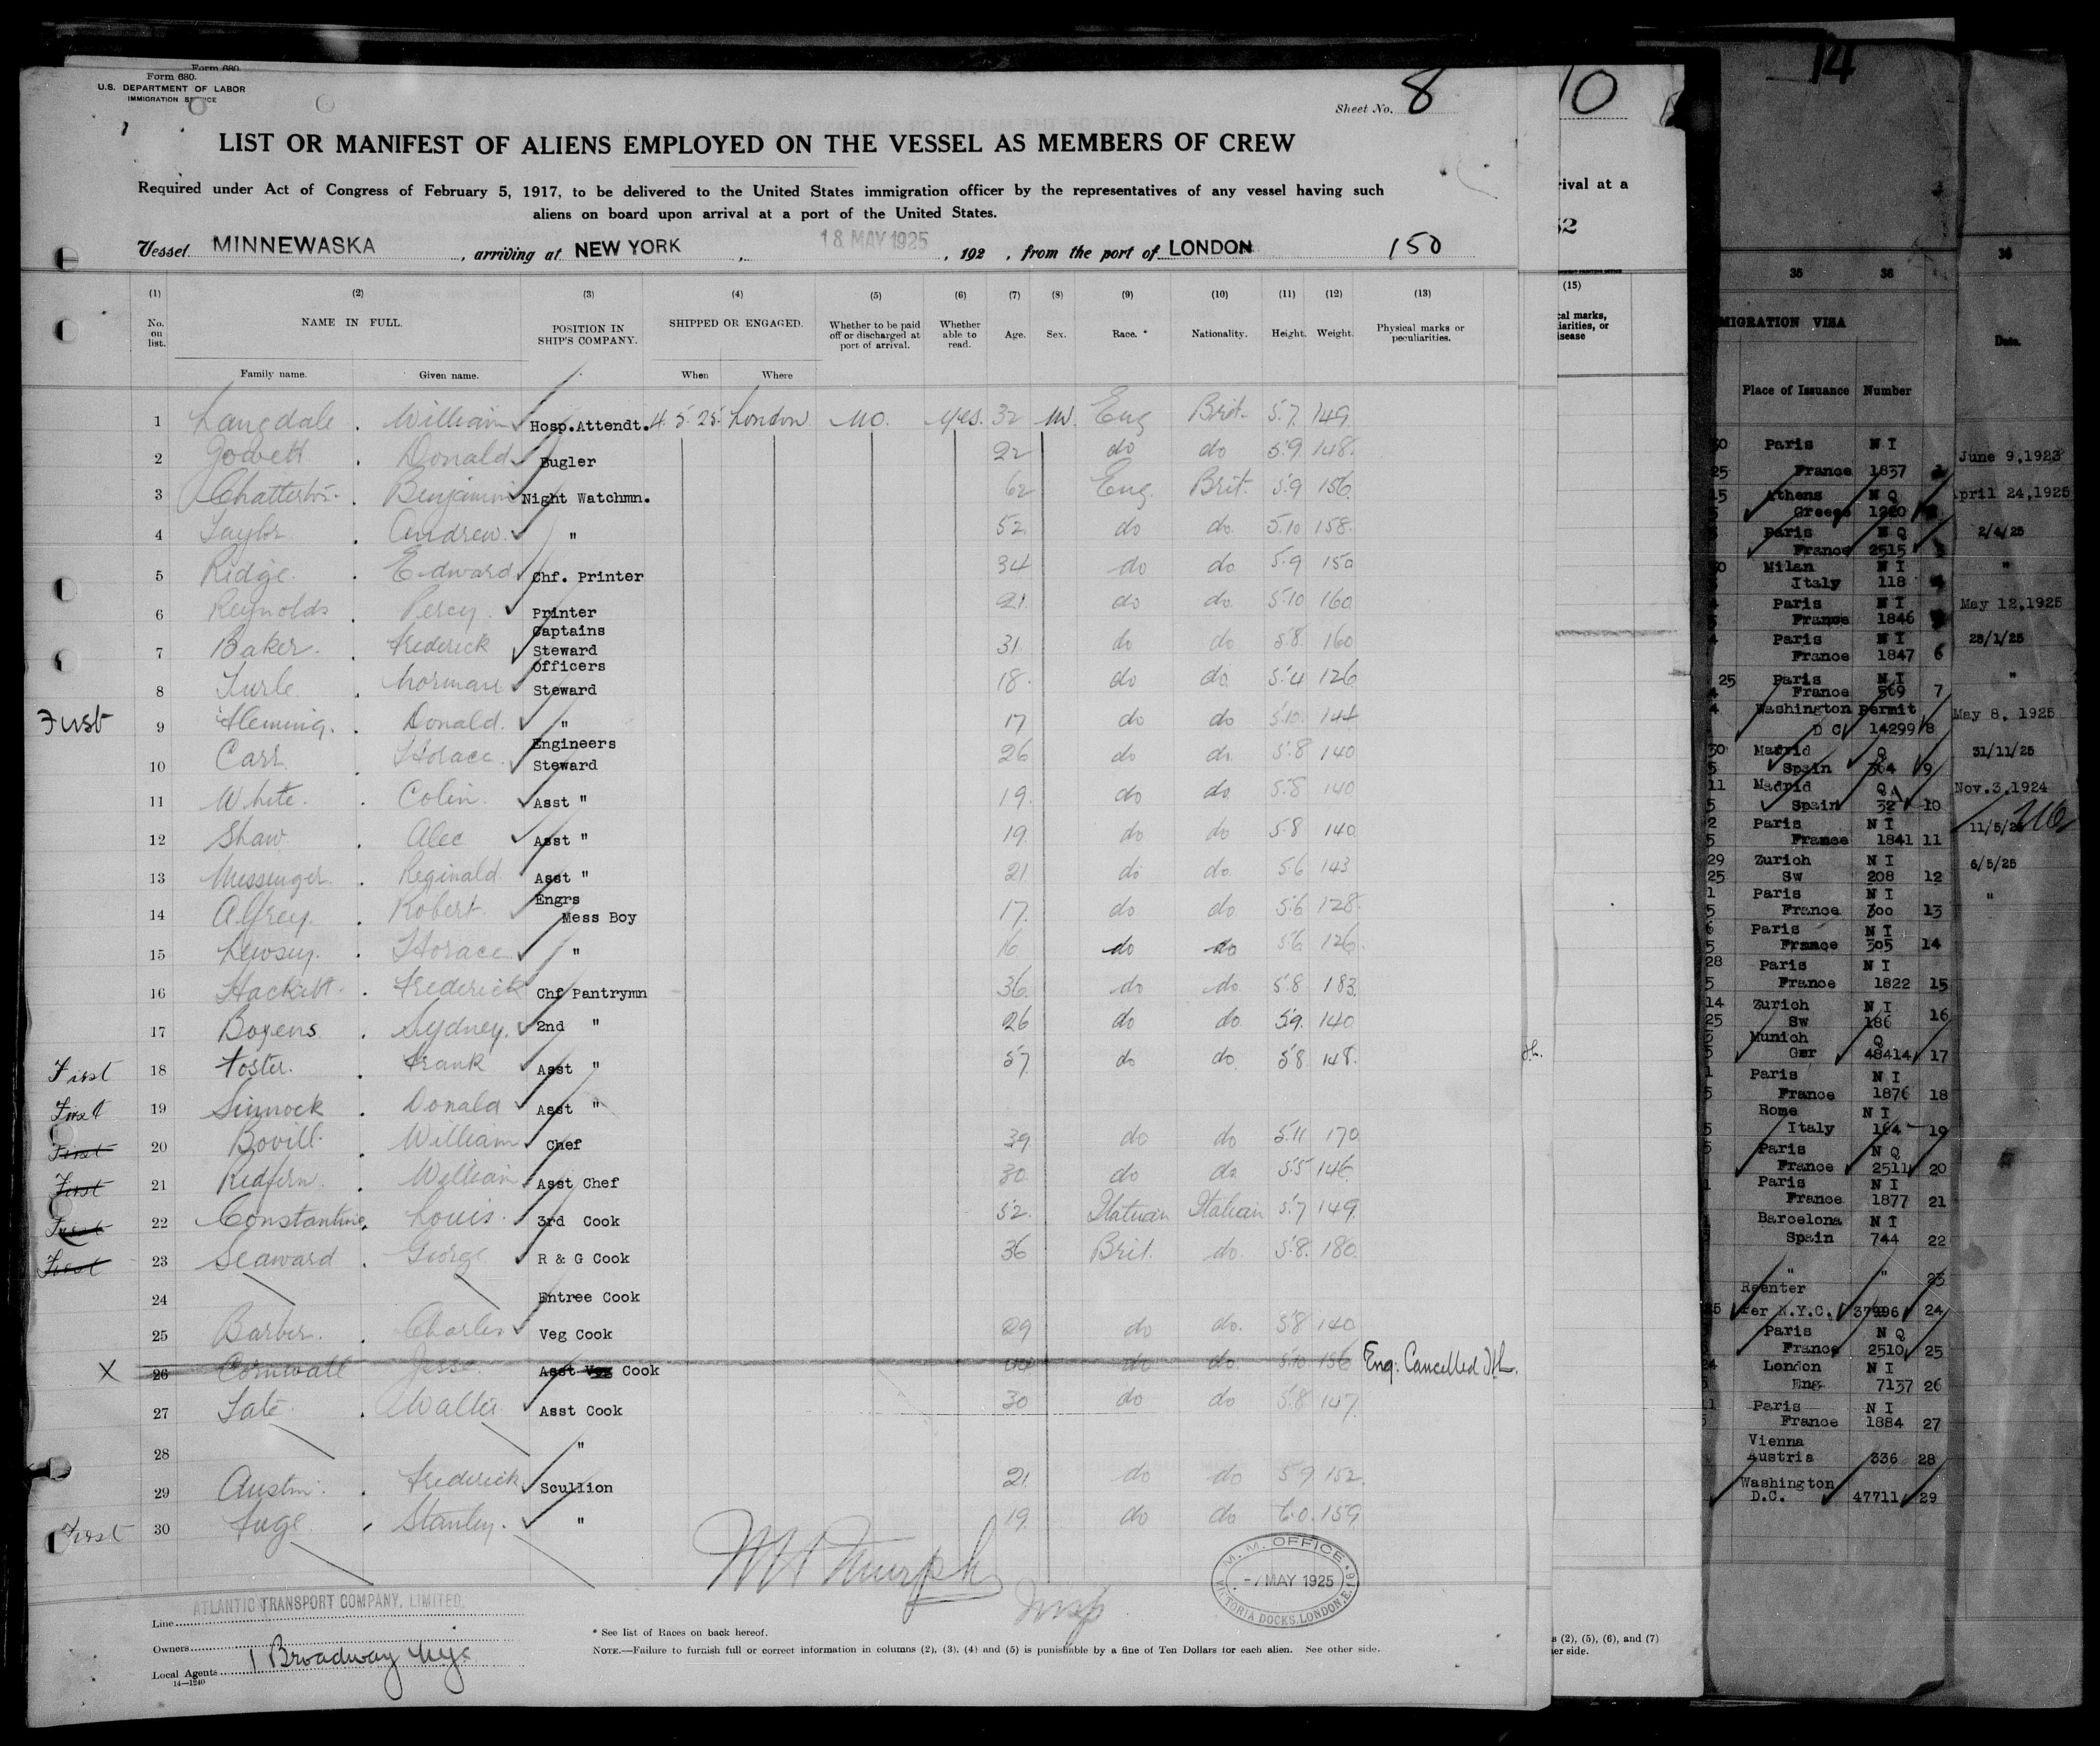 Form 680.
Form 680.
U.S. DEPARTMENT OF LABOR
IMMIGRATION SERVICE
Sheet No. 8
LIST OR MANIFEST OF ALIENS EMPLOYED ON THE VESSEL AS MEMBERS OF CREW
Required under Act of Congress of February 5, 1917, to be delivered to the United States immigration officer by the representatives of any vessel having such
aliens on board upon arrival at a port of the United States.
Vessel MINNEWASKA, arriving at NEW YORK, 18 MAY 1925, 192 , from the port of LONDON 150
(1) (2) (3) (4) (5) (6) (7) (8) (9) (10) (11) (12) (13)
No. on list. NAME IN FULL. POSITION IN SHIP'S COMPANY. SHIPPED OR ENGAGED. Whether to be paid off or discharged at port of arrival. Whether able to read. Age. Sex. Race. * Nationality. Height. Weight. Physical marks or peculiarities.
Family name. Given name. When Where
1 Langdale . William Hosp.Attendt. 4.5.25. London No. yes. 32 M. Eng Brit. 5.7. 149
2 Jowett . Donald Bugler 22 do do 5.9. 148.
3 Chatterton . Benjamin Night Watchmn. 62 Eng. Brit. 5.9 156
4 Taylor . Andrew. " 52 do do. 5.10 158.
5 Ridge. . Edward Chf. Printer 34 do do 5.9 150
6 Reynolds . Percy. Printer 21. do do. 5.10 160
7 Baker. . Frederick Captains Steward 31. do do 5.8. 160
8 Turle . Norman Officers Steward 18. do do. 5.4 126
First 9 Fleming. . Donald. " 17 do do 5.10. 144
10 Carr . Horace. Engineers Steward 26 do do. 5.8 140
11 White. . Colin. Asst " 19. do do. 5.8 140
12 Shaw . Alec Asst " 19. do do 5.8 140
13 Messenger. . Reginald. Asst " 21 do do. 5.6 143
14 . Robert. Engrs Mess Boy 17. do do 5.6 128.
15 . Horace. " 16 do do 5.6 126.
16 Hackitt. . Frederick Chf Pantrymn 36. do do. 5.8 183.
17 Boyens . Sydney. 2nd " 26 do do. 5.9. 140
First 18 Foster. . Frank Asst " 57 do do. 5.8 148.
First 19 Sinnock . Donald Asst "
First 20 Bovill. . William Chef 39. do do 5.11 170
First 21 Redfern. . William Asst Chef 30. do do. 5.5 146
First 22 Constantine. Louis. 3rd Cook 52. Italian Italian 5.7 149.
First 23 Seaward . George R & G Cook 36 Brit. do. 5.8. 180.
24 Entree Cook
25 Barber. . Charles Veg Cook 29 do do. 5.8 140
X 26 Cornwall Jesse Asst Veg Cook do. do. 5.10 156 Eng. Cancelled
27 Tate . Walter. Asst Cook 30 do do 5.8 147.
28 "
29 Austin. . Frederick Scullion 21. do do 5.9 152.
First 30 Fuge . Stanley. " 19. do do 6.0. 159
M H Murphy
Insp
M. M. OFFICE
-7 MAY 1925
VICTORIA DOCKS. LONDON, E.16
Line ATLANTIC TRANSPORT COMPANY, LIMITED.
Owners
Local Agents 1 Broadway NYC
14—1240
* See list of Races on back hereof.
NOTE.—Failure to furnish full or correct information in columns (2), (3), (4) and (5) is punishable by a fine of Ten Dollars for each alien. See other side.
10
rival at a
(15)
cal marks,
liarities, or
isease
s (2), (5), (6), and (7)
er side.
14
35 36
MIGRATION VISA
Place of Issuance Number
Paris N I
France 1837
Athens N Q
Greece
Paris N Q
France 2515
Milan N I
Italy 118
Paris N I
France 1846
Paris N I
France 1847 6
Paris N I
France 569 7
Washington Permit
D C 14299 8
Madrid Q
Spain 364 9
Madrid Q
Spain 32 10
Paris N I
France 1841 11
Zurich N I
Sw 208 12
Paris N I
France 300 13
Paris N I
France 305 14
Paris N I
France 1822 15
Zurich N I
Sw 186 16
Munich Q
Ger 48414 17
Paris N I
France 1876 18
Rome N I
Italy 164 19
Paris N Q
France 2511 20
Paris N I
France 1877 21
Barcelona N I
Spain 744 22
" " 23
Reenter
Per N.Y.C. 37996 24
Paris N Q
France 2510 25
London N I
Eng 7137 26
Paris N I
France 1884 27
Vienna
Austria 336 28
Washington
D.C. 47711 29
36
Date.
June 9,1923
April 24,1925
2/4/25
"
May 12,1925
28/1/25
"
May 8, 1925
31/11/25
Nov.3,1924
11/5/25
6/5/25
"